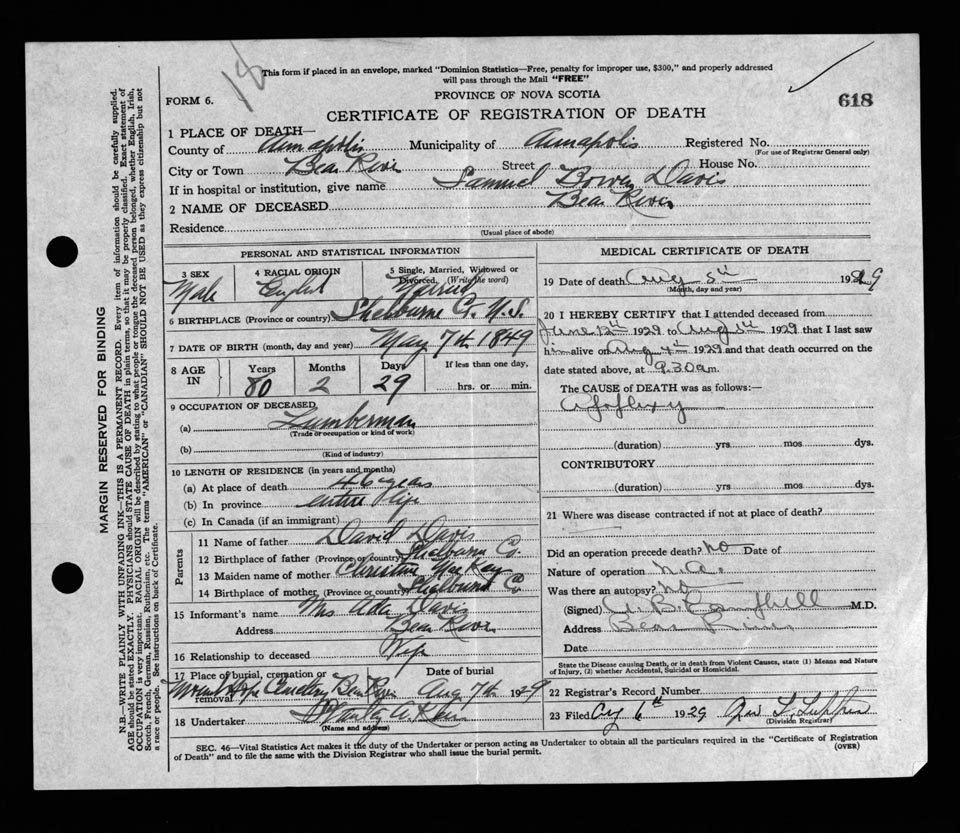 18
This form if placed in an envelope, marked "Dominion Statistics—Free, penalty for improper use, $300," and properly addressed
will pass through the Mail "FREE"
618
PROVINCE OF NOVA SCOTIA
FORM 6.
CERTIFICATE OF REGISTRATION OF DEATH
1 PLACE OF DEATH—
County of Annapolis Municipality of Annapolis Registered No.
(For use of Registrar General only)
City or Town Bear River Street House No.
If in hospital or institution, give name Samuel Bowen Davis
2 NAME OF DECEASED Bear River
Residence
(Usual place of abode)
PERSONAL AND STATISTICAL INFORMATION
3 SEX Male
4 RACIAL ORIGIN English
5 Single, Married, Widowed or Divorced. (Write the word) Married
6 BIRTHPLACE (Province or country) Shelburne Co. N.S.
7 DATE OF BIRTH (month, day and year) May 7th 1849
8 AGE IN Years 80 Months 2 Days 29 If less than one day, hrs. or min.
9 OCCUPATION OF DECEASED
(a) Lumberman
(Trade or occupation or kind of work)
(b)
(Kind of industry)
10 LENGTH OF RESIDENCE (in years and months)
(a) At place of death 46 years
(b) In province entire life
(c) In Canada (if an immigrant)
Parents
11 Name of father David Davis
12 Birthplace of father (Province or country) Shelburne Co.
13 Maiden name of mother Christina MacKay
14 Birthplace of mother (Province or country) Shelburne Co
15 Informant's name Mrs Ada Davis
Address Bear River
16 Relationship to deceased Wife
17 Place of burial, cremation or removal Mount Hope Cemetery Bear River
Date of burial Aug 7th 1929
18 Undertaker
(Name and address)
MEDICAL CERTIFICATE OF DEATH
19 Date of death Aug 5th 1929
(Month, day and year)
20 I HEREBY CERTIFY that I attended deceased from
June 12th 1929 to Aug 1929 that I last saw
him alive on Aug 4th 1929 and that death occurred on the
date stated above, at 9.30 a m.
The CAUSE of DEATH was as follows:—
Apoplexy
(duration) yrs mos dys.
CONTRIBUTORY
(duration) yrs mos dys.
21 Where was disease contracted if not at place of death?
Did an operation precede death? No Date of
Nature of operation n.a.
Was there an autopsy? No
(Signed) Campbell M.D.
Address Bear River
Date
State the Disease causing Death, or in death from Violent Causes, state (1) Means and Nature
of Injury, (2) whether Accidental, Suicidal or Homicidal.
22 Registrar's Record Number
23 Filed Aug 6th 1929
(Division Registrar)
SEC. 46—Vital Statistics Act makes it the duty of the Undertaker or person acting as Undertaker to obtain all the particulars required in the "Certificate of Registration
of Death" and to file the same with the Division Registrar who shall issue the burial permit.
(OVER)
MARGIN RESERVED FOR BINDING
N.B.—WRITE PLAINLY WITH UNFADING INK—THIS IS A PERMANENT RECORD. Every item of information should be carefully supplied.
AGE should be stated EXACTLY. PHYSICIANS should STATE CAUSE OF DEATH in plain terms, so that it may be properly classified. Exact statement of
OCCUPATION is very important. RACIAL ORIGIN will be described by stating to what people or tongue the deceased person belonged, whether English, Irish,
Scotch, French, German, Russian, Ruthenian, etc. The terms "AMERICAN" or "CANADIAN" SHOULD NOT BE USED as they express citizenship but not
a race or people. See instructions on back of Certificate.